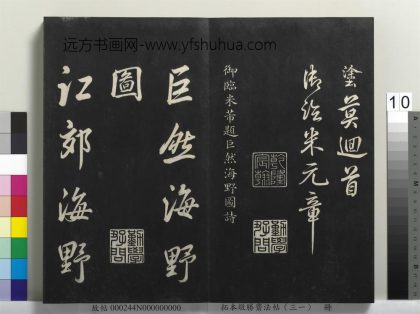 远方书画网-www.yfshuhua.com
塗莫迴首
御臨米元章
乾隆宸翰
勤學好問
御臨米芾題巨然海野圖詩
巨然海野
圖
勤學好問
江郊海野
10
A
故帖 000244N000000000 拓本敬勝齋法帖(三一) 冊